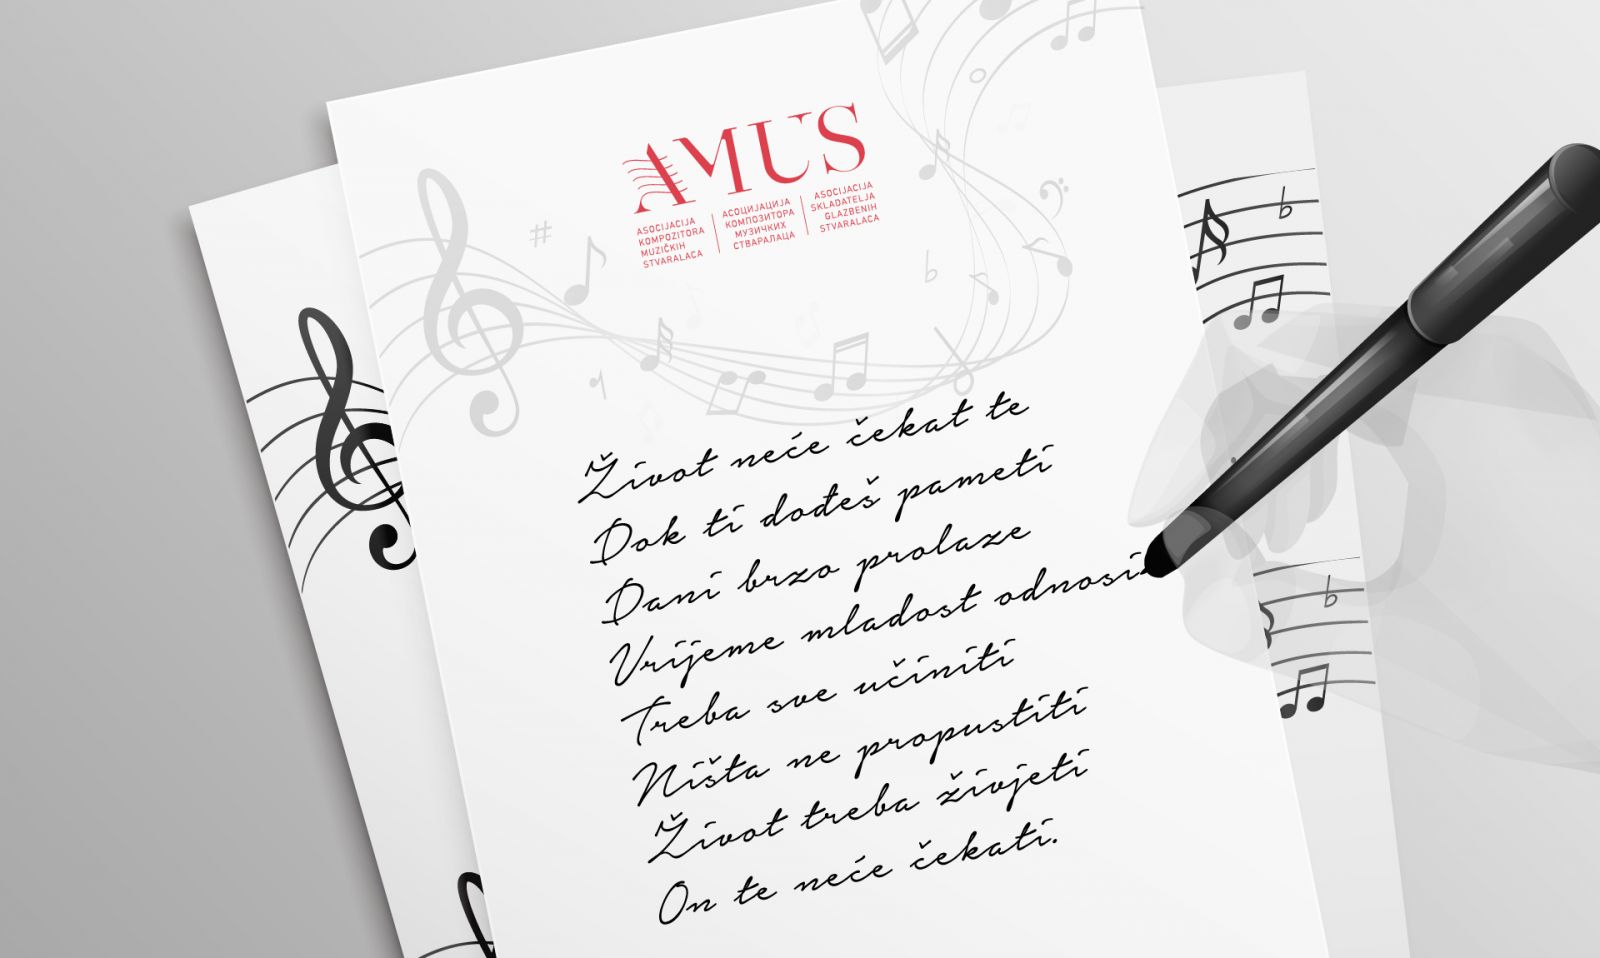 AMUS
ASOCIJACIJA
KOMPOZITORA
MUZIČKIH
STVARALACA
АСОЦИЈАЦИЈА
КОМПОЗИТОРА
МУЗИЧКИХ
СТВАРАЛАЦА
ASOCIJACIJA
SKLADATELJA
GLAZBENIH
STVARALACA
Život neće čekat te
Dok ti dođeš pameti
Dani brzo prolaze
Vrijeme mladost odnosi
Treba sve učiniti
Ništa ne propustiti
Život treba živjeti
On te neće čekati.